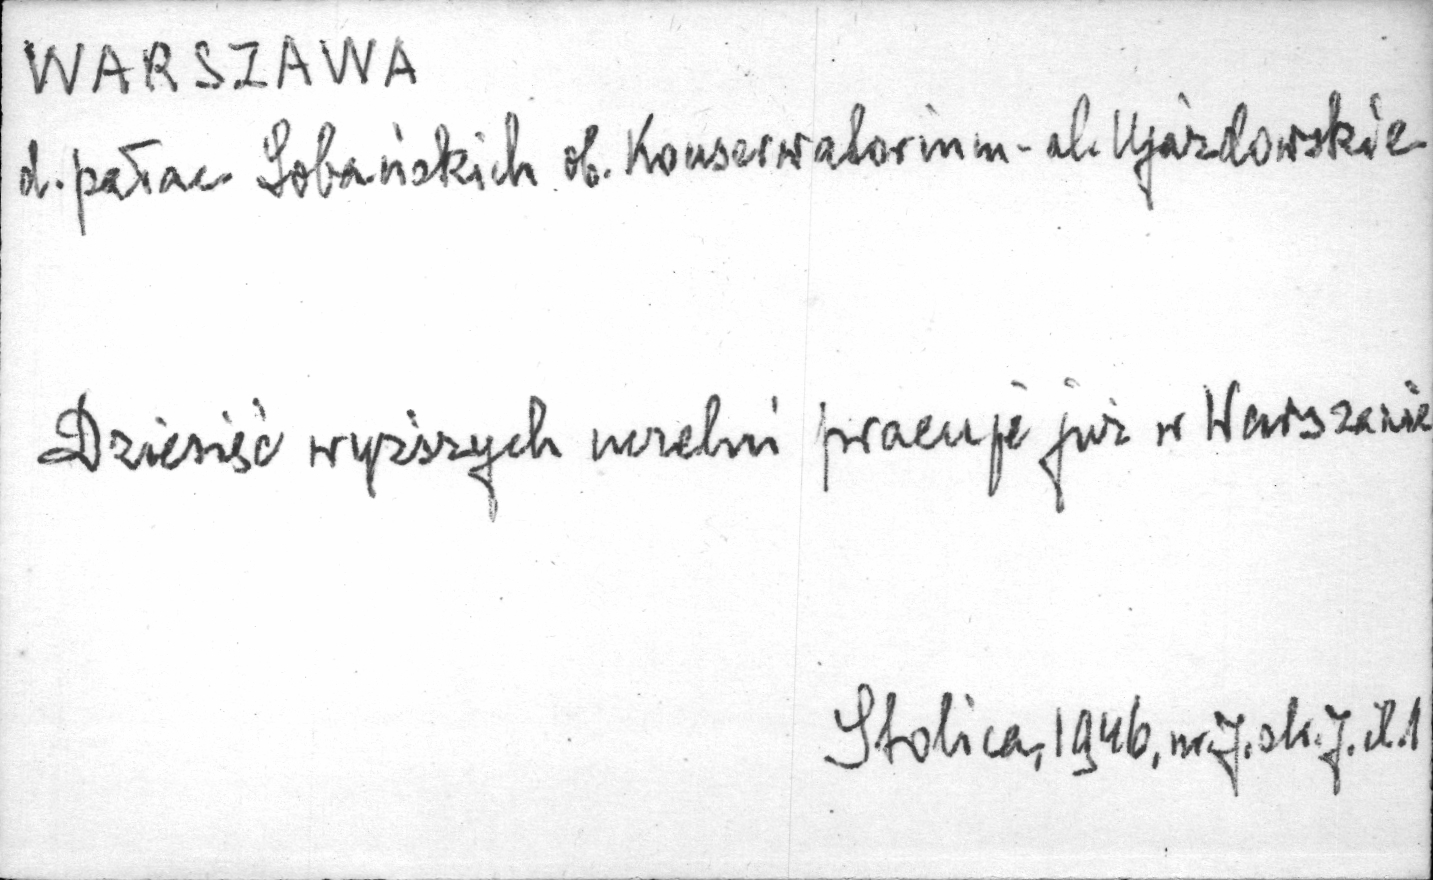 WARSZAWA
d. pałac Sobańskich ob. Konserwatorium - al. Ujazdowskie
Dziesięć wyższych uczelni pracuje już w Warszawie
Stolica, 1946, nr 7. str. 7. il. 1